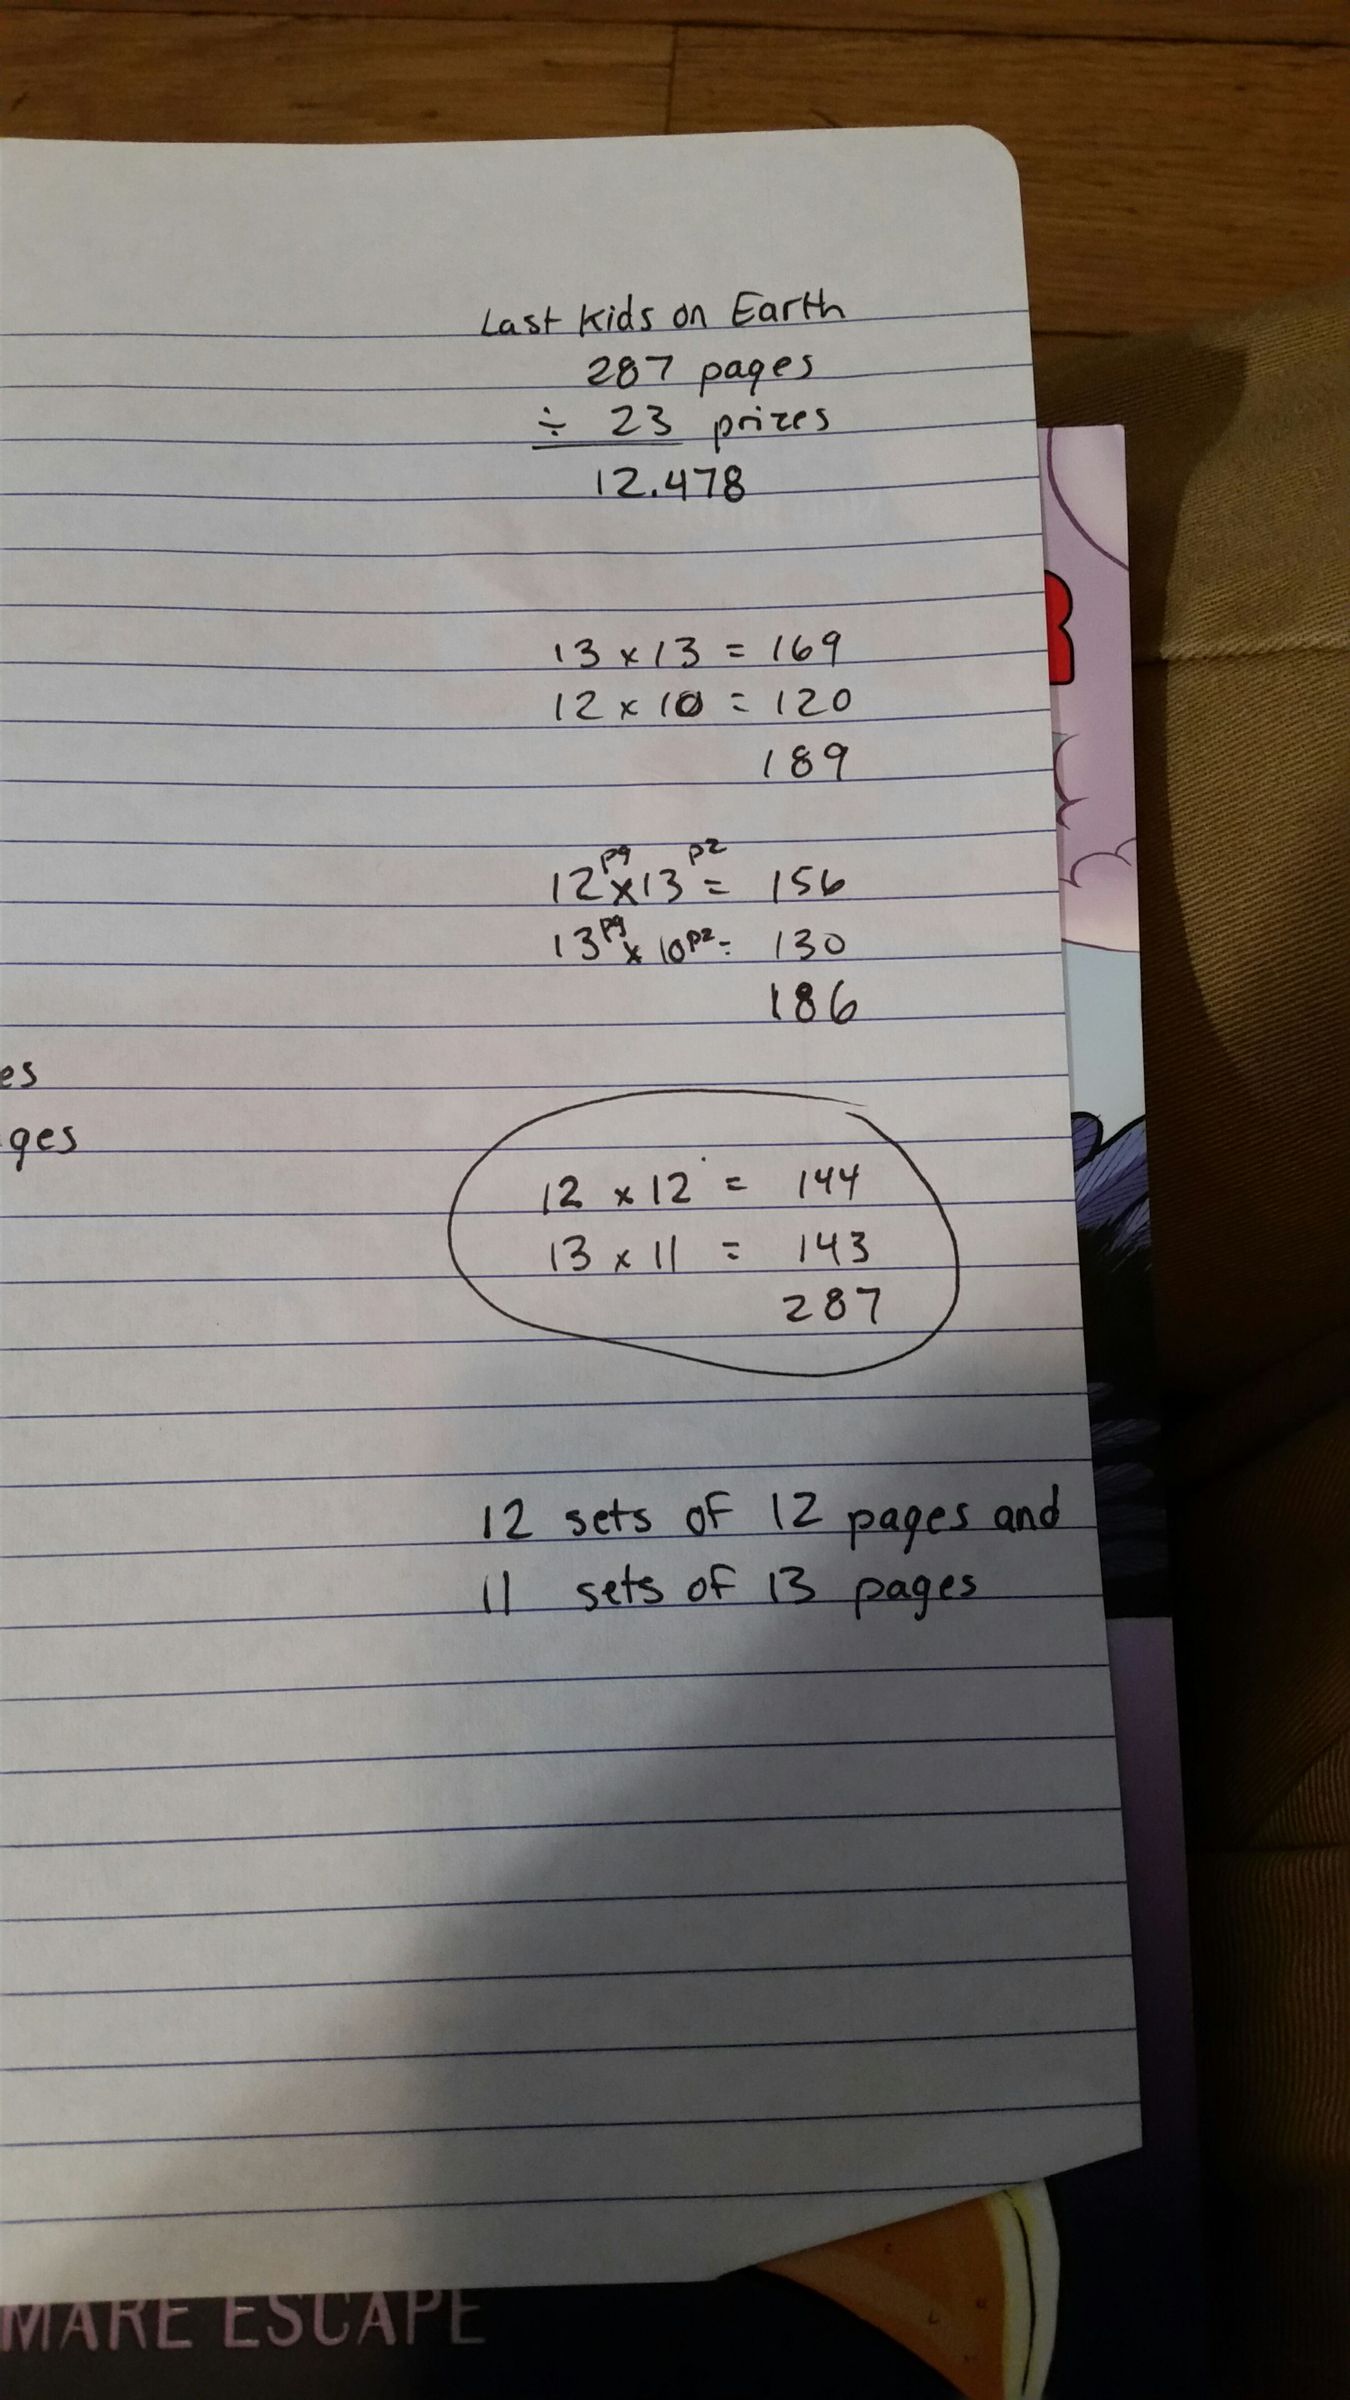 Last Kids on Earth
287 pages
÷ 23 prizes
12.478
13 x 13 = 169
12 x 10 = 120
189
12 pg x 13 pz = 156
13 pg x 10 pz = 130
186
es
ges
12 x 12 = 144
13 x 11 = 143
287
12 sets of 12 pages and
11 sets of 13 pages
R
MARE ESCAPE